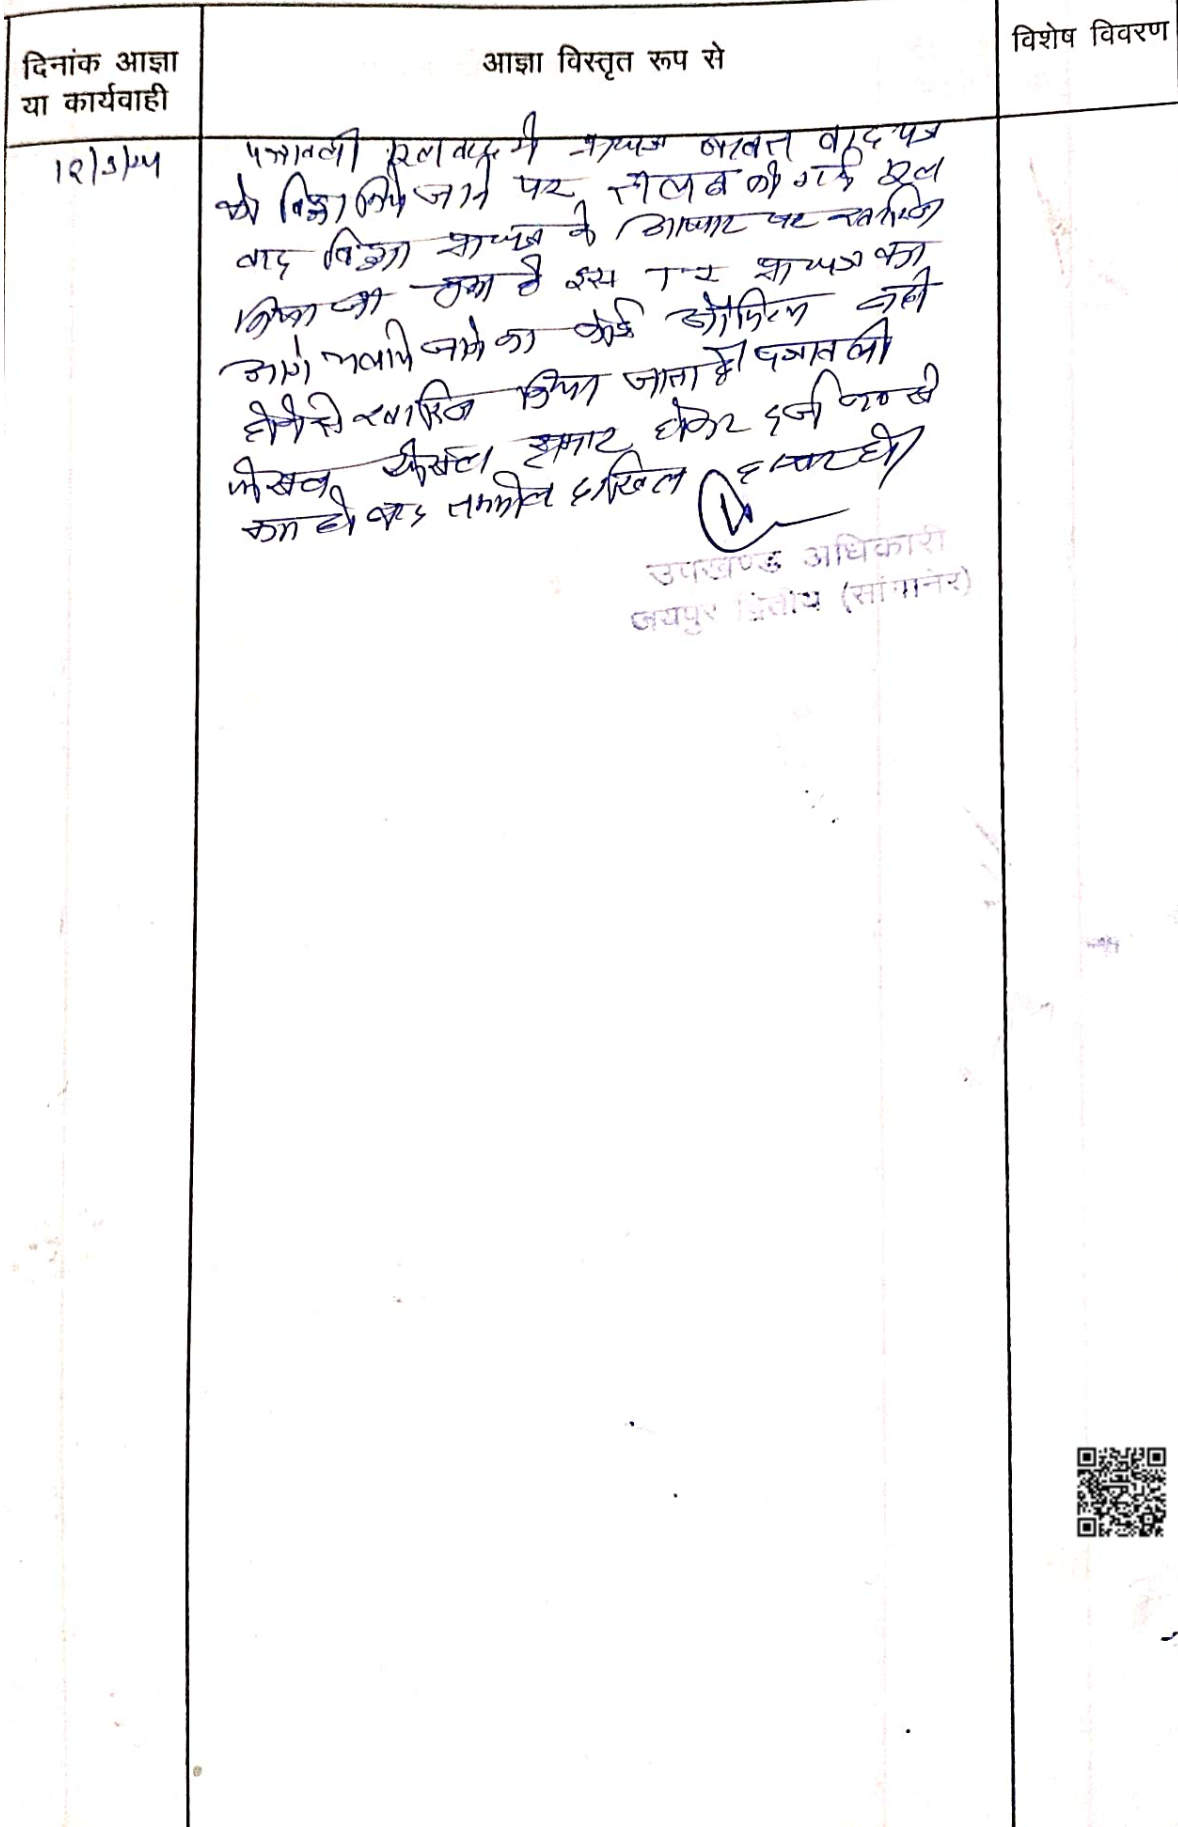 दिनांक आज्ञा
या कार्यवाही
आज्ञा विस्तृत रूप से
विशेष विवरण
पत्रावली मूल वाद में प्रा०पत्र बाबत वाद पत्र
को विड्रा किये जाने पर तलब की गई मूल
वाद विड्रा प्रा०पत्र के आधार पर खारिज
किया जा चुका है इस T I प्रा०पत्र का
आगे चलाये जाने का कोई औचित्य नहीं
होने से खारिज किया जाता है। पत्रावली
फैसल शुमार होकर दर्ज न० से
कम हो बाद तकमील दाखिल दफ्तर हो।
उपखण्ड अधिकारी
जयपुर द्वितीय (सांगानेर)